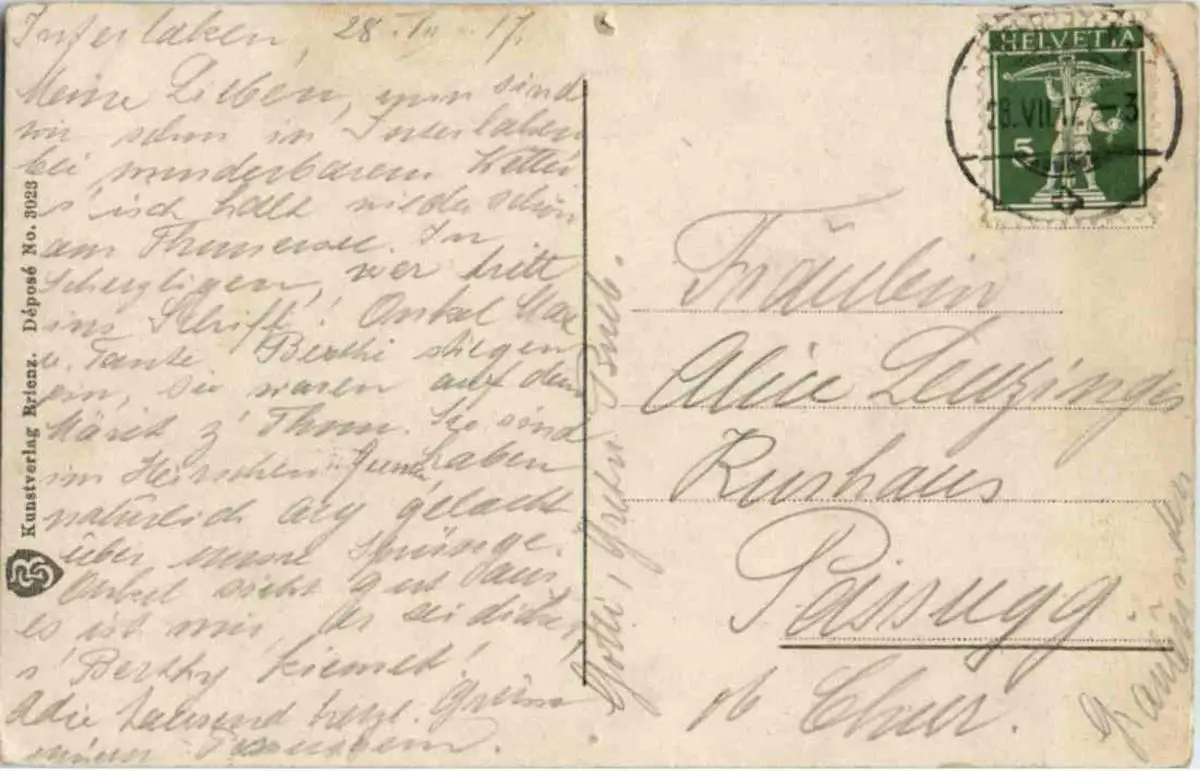 Interlaken, 28. VII. 17.
Meine Lieben, nun sind
wir schon in Interlaken
bei wunderbarem Wetter
s' isch halt wieder schön
am Thunersee. In
Scherzligen, wer tritt
ins Schiff! Onkel Max
u. Tante Berthi stiegen
ein, sie waren auf dem
Märit z' Thun. Sie sind
im Hirschen haben
natürlich arg gelacht
über unsre Sprünge.
Onkel sieht gut aus,
es ist mir, er sei dicker,
s' Berthy
Adie tausend herzl. Grüsse
Gotti, Gretu
Fräulein
Alice Leuzinger
Kurhaus
Passugg.
ob Chur.
Graubünden
HELVETIA
5
28.VII.17.-3
Kunstverlag Brienz. Déposé No. 3023